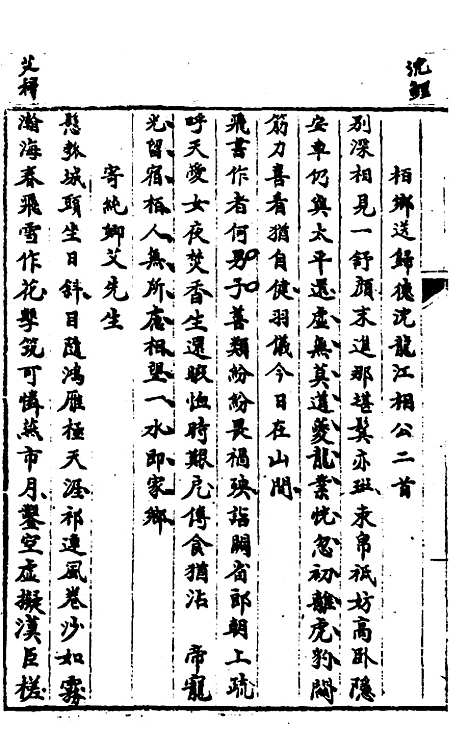 沈鯉
栢鄉送歸德沈龍江相公二首
別深相見一舒顏末進那堪鬓亦斑束帛祇妨高卧隱
安車仍與太平還虛無莫道夔龍業恍忽初離虎豹關
筋力喜看猶自健羽儀今日在山間
飛書作者何男子善類紛紛畏禍殃詣闕省郎朝上疏
呼天愛女夜焚香生還暇恤時艱危傳食猶沾　帝寵
光留宿栢人無所應相望一水即家鄉
寄純卿艾先生
懸瓠城頭坐日斜目隨鴻雁極天涯祁連風卷沙如霧
瀚海春飛雪作花擊筑可憐燕市月鑿空虛擬漢臣槎
艾穆